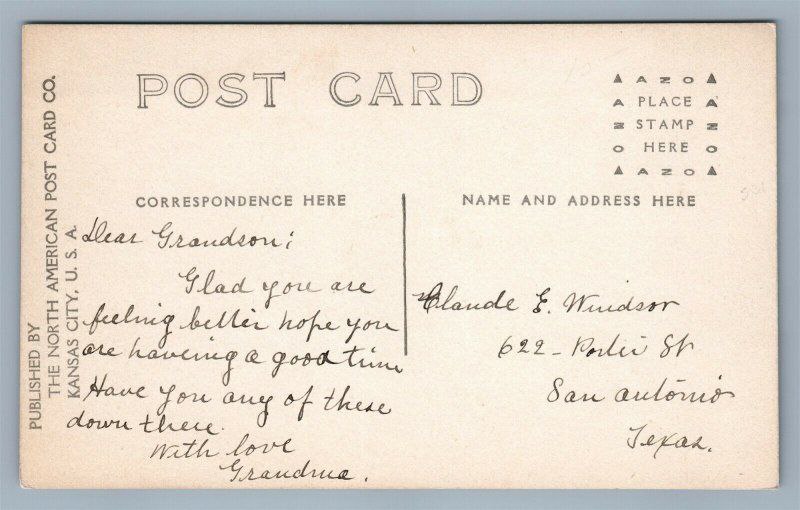 POST CARD
▲ A Z O ▲
A PLACE A
Z STAMP Z
O HERE O
▲ A Z O ▲
CORRESPONDENCE HERE
NAME AND ADDRESS HERE
PUBLISHED BY
THE NORTH AMERICAN POST CARD CO.
KANSAS CITY, U. S. A.
Dear Grandson;
Glad you are
feeling better hope you
are haveing a good time
Have you any of these
down there.
With love
Grandma.
Claude E. Windsor
622 - Porter St
San antonio
Texas.